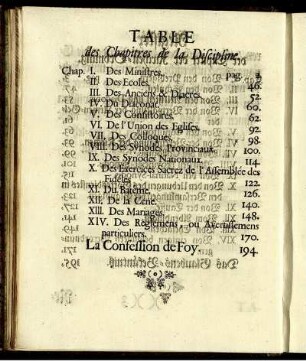 TABLE
des Chapitres de la Discipline.
Chap. I. Des Ministres. pag. 2.
II. Des Ecoles. 46.
III. Des Anciens & Diacres. 52.
IV. Du Diaconat. 60.
V. Des Consistoires. 62.
VI. De l'Union des Eglises. 92.
VII. Des Colloques. 98.
VIII. Des Synodes Provinciaux. 100.
IX. Des Synodes Nationaux. 114.
X. Des Exercices Sacrez de l'Assemblée des
Fideles. 122.
XI. Du Batême. 126.
XII. De la Cene. 140.
XIII. Des Mariages. 148.
XIV. Des Reglemens, ou Avertissemens
particuliers. 170.
La Confession de Foy. 194.